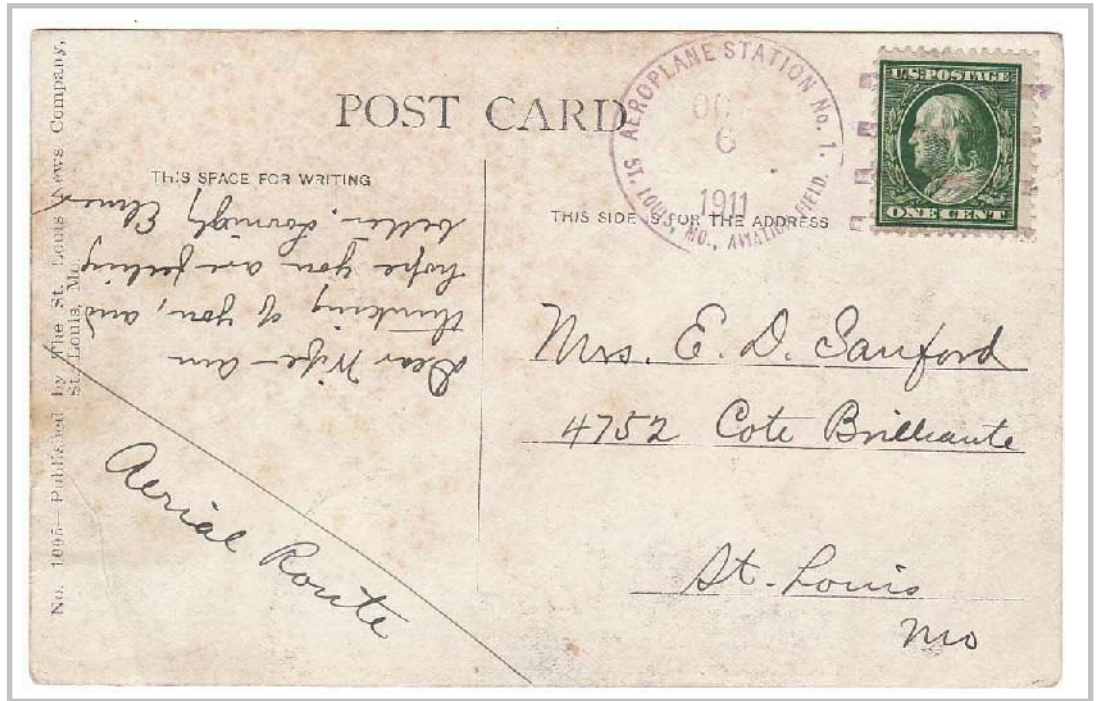 No. 1095—Published by The St. Louis News Company,
St. Louis, Mo.
POST CARD
AEROPLANE STATION No. 1.
OC
6
1911
ST. LOUIS, MO., AVIATION FIELD.
U.S. POSTAGE
ONE CENT
THIS SPACE FOR WRITING
THIS SIDE IS FOR THE ADDRESS
Dear Wife – am
thinking of you, and
hope you are feeling
better. Lovingly Elmer
Mrs. E. D. Sanford
4752 Cote Brilliante
St. Louis
Mo
Aerial Route